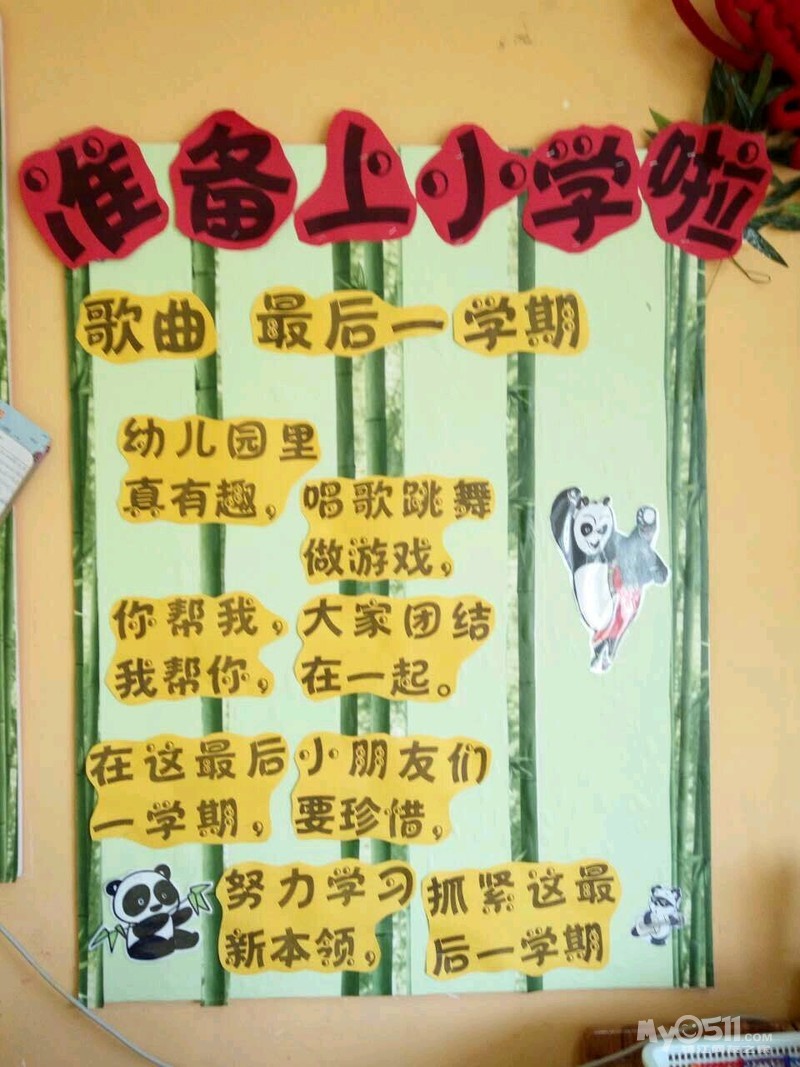 准备上小学啦
歌曲 最后一学期
幼儿园里
真有趣，
唱歌跳舞
做游戏，
你帮我，
我帮你，
大家团结
在一起。
在这最后
一学期，
小朋友们
要珍惜，
努力学习
新本领，
抓紧这最
后一学期
My0511.COM